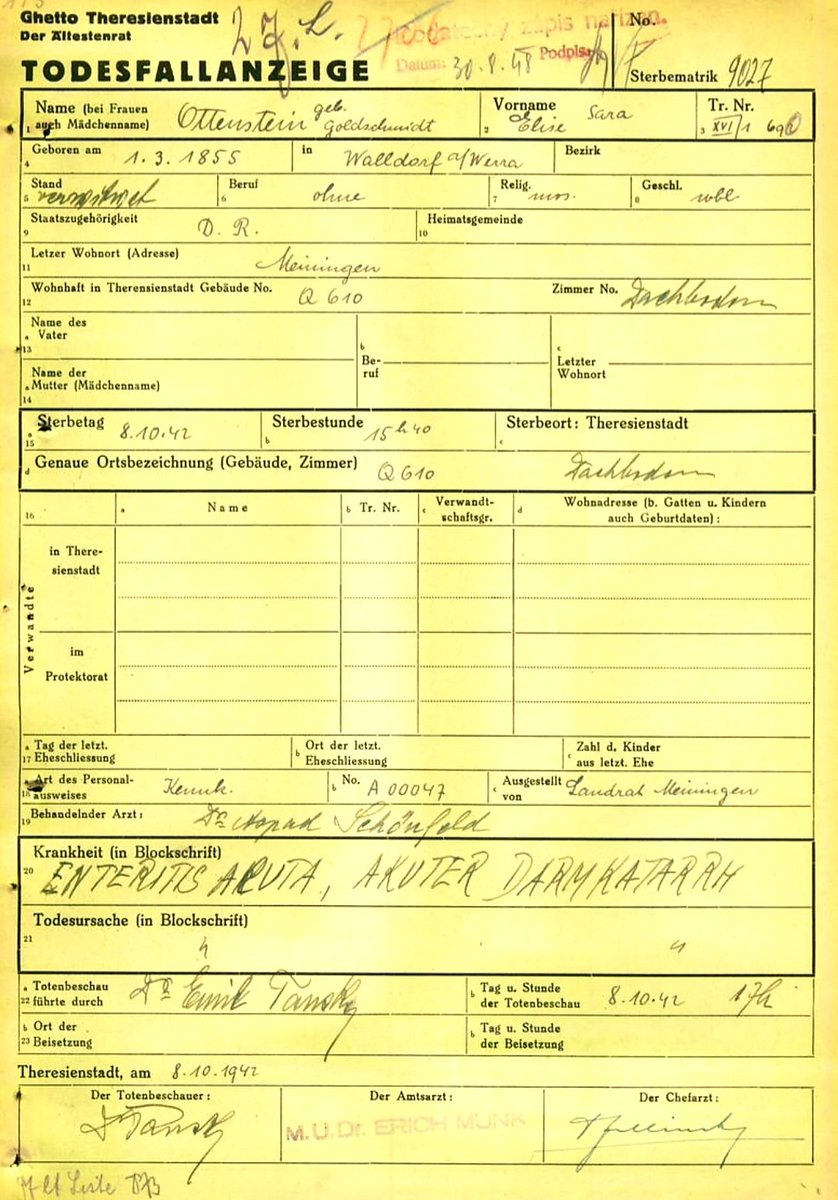 Ghetto Theresienstadt
Der Ältestenrat
TODESFALLANZEIGE
zápis nařízen.
Datum: 30.8.48 Podpis:
No.
Sterbematrik 9027
1 Name (bei Frauen auch Mädchenname) Ottenstein geb. Goldschmidt
2 Vorname Elise Sara
3 Tr. Nr. XVI/1 690
4 Geboren am 1.3.1855 in Walldorf a/Werra Bezirk
5 Stand verwitwet
6 Beruf ohne
7 Relig. mos.
8 Geschl. wbl.
9 Staatszugehörigkeit D. R.
10 Heimatsgemeinde
11 Letzer Wohnort (Adresse) Meiningen
12 Wohnhaft in Therensienstadt Gebäude No. Q 610 Zimmer No. Dachboden
a 13 Name des Vater
b Beruf
c Letzter Wohnort
a 14 Name der Mutter (Mädchenname)
a 15 Sterbetag 8.10.42
b Sterbestunde 15 h 40
c Sterbeort: Theresienstadt
d Genaue Ortsbezeichnung (Gebäude, Zimmer) Q 610 Dachboden
16 a Name b Tr. Nr. c Verwandtschaftsgr. d Wohnadresse (b. Gatten u. Kindern auch Geburtdaten):
Verwandte
in Theresienstadt
im Protektorat
a 17 Tag der letzt. Eheschliessung
b Ort der letzt. Eheschliessung
c Zahl d. Kinder aus letzt. Ehe
a 18 Art des Personalausweises Kennk.
b No. A 00047
c Ausgestellt von Landrat Meiningen
19 Behandelnder Arzt: Dr Schönfeld
20 Krankheit (in Blockschrift)
ENTERITIS ACUTA, AKUTER DARMKATARRH
21 Todesursache (in Blockschrift)
" "
a 22 Totenbeschau führte durch Dr Emil Tansky
b Tag u. Stunde der Totenbeschau 8.10.42 17h
b 23 Ort der Beisetzung
b Tag u. Stunde der Beisetzung
Theresienstadt, am 8.10.1942
Der Totenbeschauer: Der Amtsarzt: Der Chefarzt:
Dr Tansky M.U.Dr. ERICH MUNK